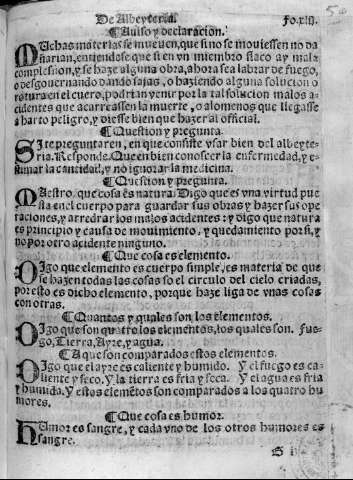 De Albeyteria. Fo. liij.
¶ Auiso y declaracion.
MUchas materias se mueuen, que si no se mouiessen no da
ñarian, entiendese que si en vn miembro flaco ay mala
complesion, y se haze alguna obra, ahora sea labrar de fuego,
o desgouernando dando sajas, o haziendo alguna solucion o
rotura en el cuero, podrian venir por la tal solucion malos a=
cidentes que acarreassen la muerte, o alomenos que llegasse
a harto peligro, y diesse bien que hazer al official.
¶ Question y pregunta.
SI te preguntaren, en que consiste vsar bien del albeyte=
ria. Responde. Que en bien conoscer la enfermedad, y e=
stimar la cantidad, y no ignorar la medicina.
¶ Question y pregunta.
MAestro, que cosa es natura? Digo que es vna virtud pue
sta en el cuerpo para guardar sus obras y hazer sus ope
raciones, y arredrar los malos acidentes: y digo que natura
es principio y causa de mouimiento, y quedamiento por si, y
no por otro acidente ninguno.
¶ Que cosa es elemento.
DIgo que elemento es cuerpo simple, es materia de que
se hazen todas las cosas so el circulo del cielo criadas,
por esto es dicho elemento, porque haze liga de vnas cosas
con otras.
¶ Quantos y quales son los elementos.
DIgo que son quatro los elementos, los quales son. Fue
go, Tierra, Ayre, y agua.
¶ A que son comparados estos elementos.
DIgo que el ayre es caliente y humido. Y el fuego es ca=
liente y seco. Y la tierra es fria y seca. Y el agua es fria
y humida. Y estos elemẽtos son comparados a los quatro hu
mores.
¶ Que cosa es humor.
HUmor es sangre, y cada vno de los otros humores es
sangre.